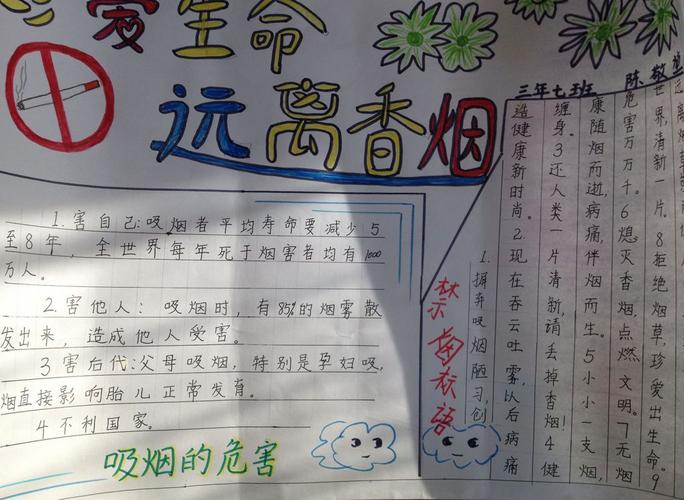 爱生命
远离香烟
1.害自己:吸烟者平均寿命要减少5
至8年，全世界每年死于烟害者均有1000
万人。
2.害他人：吸烟时，有85%的烟雾散
发出来，造成他人受害。
3害后代:父母吸烟，特别是孕妇吸，
烟直接影响胎儿正常发育。
4不利国家。
吸烟的危害
三年七班 陈敬
禁 标语
1.摒弃吸烟陋习,创
造健康新时尚。2.现在吞云吐雾,以后病痛
缠身。3还人类一片清新,请丢掉香烟!4健
康随烟而逝,病痛伴烟而生。5小小一支烟,
危害万万千。6熄灭香烟,点燃文明。7无烟
世界,清新一片。8拒绝烟草,珍爱出生命。9
远离烟草